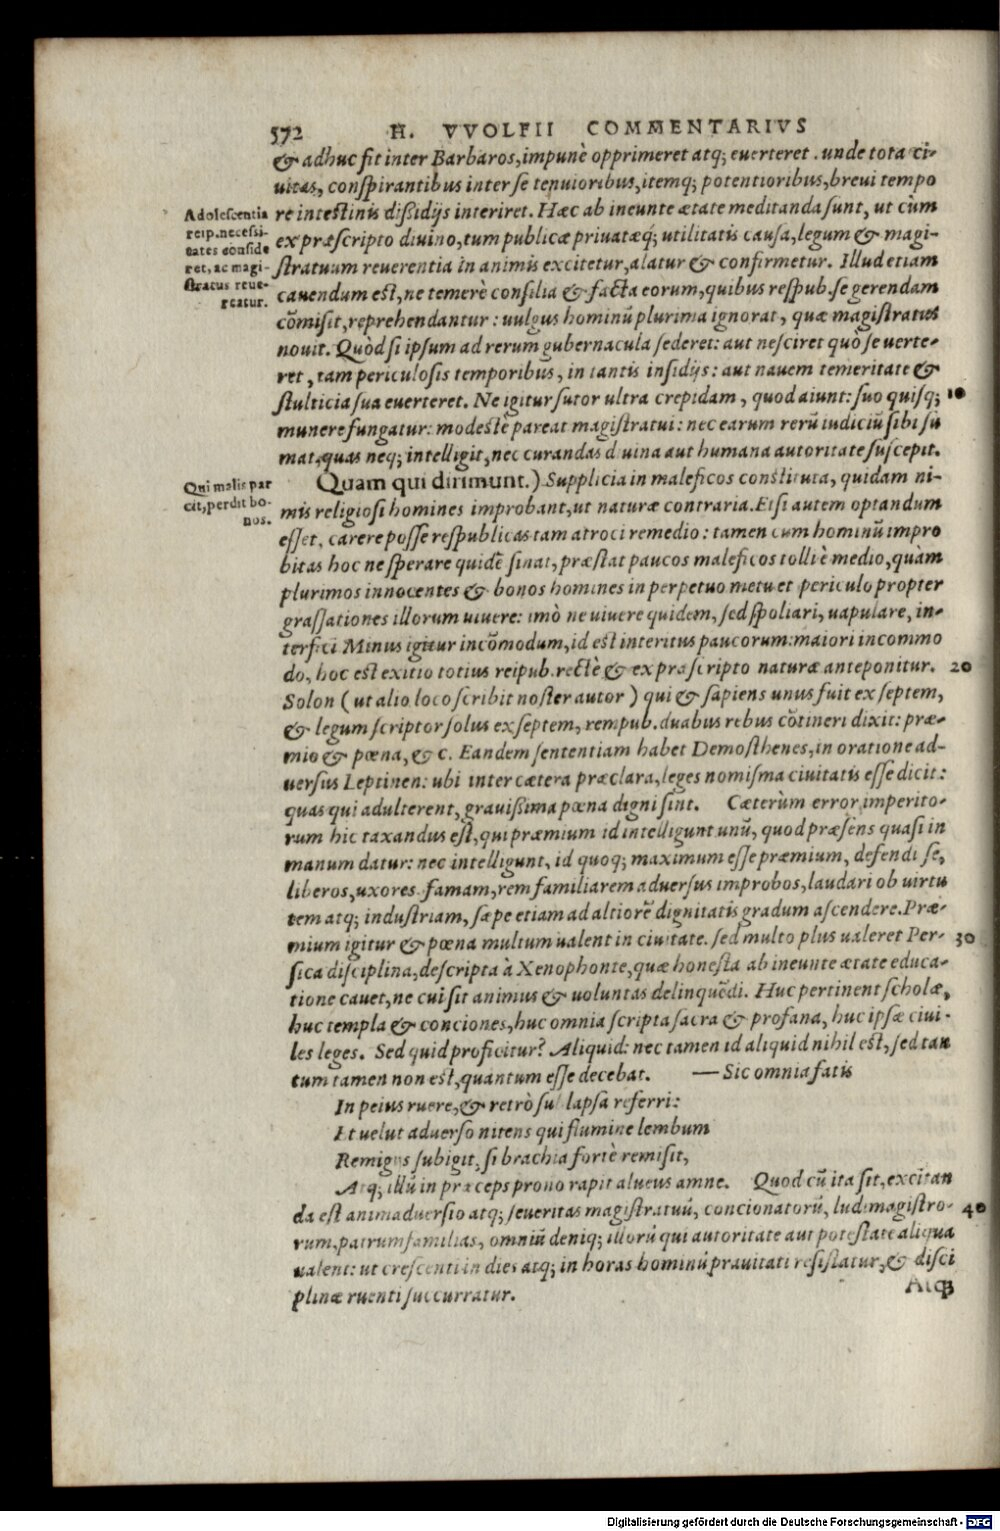 572 H. VVOLFII COMMENTARIVS
& adhuc fit inter Barbaros, impunè opprimeret atq; euerteret. unde tota ci-
uitas, conspirantibus inter se tenuioribus, itemq; potentioribus, breui tempo
Adolescentia
reip. necessi-
tates conside
ret, ac magi-
stratus reue-
reatur.
re intestinis dißidijs interiret. Hæc ab ineunte ætate meditanda sunt, ut cùm
ex præscripto diuino, tum publicæ priuatæq; utilitatis causa, legum & magi-
stratuum reuerentia in animis excitetur, alatur & confirmetur. Illud etiam
cauendum est, ne temerè consilia & facta eorum, quibus respub. se gerendam
cōmisit, reprehendantur: uulgus hominū plurima ignorat, quæ magistratus
nouit. Quòd si ipsum ad rerum gubernacula sederet: aut nesciret quò se uerte-
ret, tam periculosis temporibus, in tantis insidijs: aut nauem temeritate &
stulticia sua euerteret. Ne igitur sutor ultra crepidam, quod aiunt: suo quisq; 10
munere fungatur: modestè pareat magistratui: nec earum rerū iudiciū sibi su
mat, quas neq; intelligit, nec curandas diuina aut humana autoritate suscepit.
Qui malis par
cit, perdit bo-
nos.
Quam qui dirimunt.) Supplicia in maleficos constituta, quidam ni-
mis religiosi homines improbant, ut naturæ contraria. Etsi autem optandum
esset, carere posse respublicas tam atroci remedio: tamen cum hominū impro
bitas hoc ne sperare quidē sinat, præstat paucos maleficos tolli è medio, quàm
plurimos innocentes & bonos homines in perpetuo metu et periculo propter
grassationes illorum uiuere: imò ne uiuere quidem, sed spoliari, uapulare, in-
terfici Minus igitur incōmodum, id est interitus paucorum: maiori incommo
do, hoc est exitio totius reipub. rectè & ex præscripto naturæ anteponitur. 20
Solon (ut alio loco scribit noster autor) qui & sapiens unus fuit ex septem,
& legum scriptor solus ex septem, rempub. duabus rebus cōtineri dixit: præ-
mio & pœna, & c. Eandem sententiam habet Demosthenes, in oratione ad-
uersus Leptinen: ubi inter cætera præclara, leges nomisma ciuitatis esse dicit:
quas qui adulterent, grauißima pœna digni sint. Cæterùm error imperito-
rum hic taxandus est, qui præmium id intelligunt unū, quod præsens quasi in
manum datur: nec intelligunt, id quoq; maximum esse præmium, defendi se,
liberos, uxores famam, rem familiarem aduersus improbos, laudari ob uirtu
tem atq; industriam, sæpe etiam ad altiorē dignitatis gradum ascendere. Præ-
mium igitur & pœna multum ualent in ciuitate. sed multo plus ualeret Per- 30
sica disciplina, descripta à Xenophonte, quæ honesta ab ineunte ætate educa-
tione cauet, ne cui sit animus & uoluntas delinquēdi. Huc pertinent scholæ,
huc templa & conciones, huc omnia scripta sacra & profana, huc ipsæ ciui-
les leges. Sed quid proficitur? Aliquid: nec tamen id aliquid nihil est, sed tan
tum tamen non est, quantum esse decebat. — Sic omnia fatis
In peius ruere, & retrò sublapsa referri:
Et uelut aduerso nitens qui flumine lembum
Remigijs subigit, si brachia fortè remisit,
Atq; illū in præceps prono rapit alueus amne. Quod cū ita sit, excitan
da est animaduersio atq; seueritas magistratuū, concionatorū, ludimagistro- 40
rum, patrumfamilias, omniū deniq; illorū qui autoritate aut potestate aliqua
ualent: ut crescenti in dies atq; in horas hominū prauitati resistatur, & disci
plinæ ruenti succurratur.
Atq;
Digitalisierung gefördert durch die Deutsche Forschungsgemeinschaft - DFG